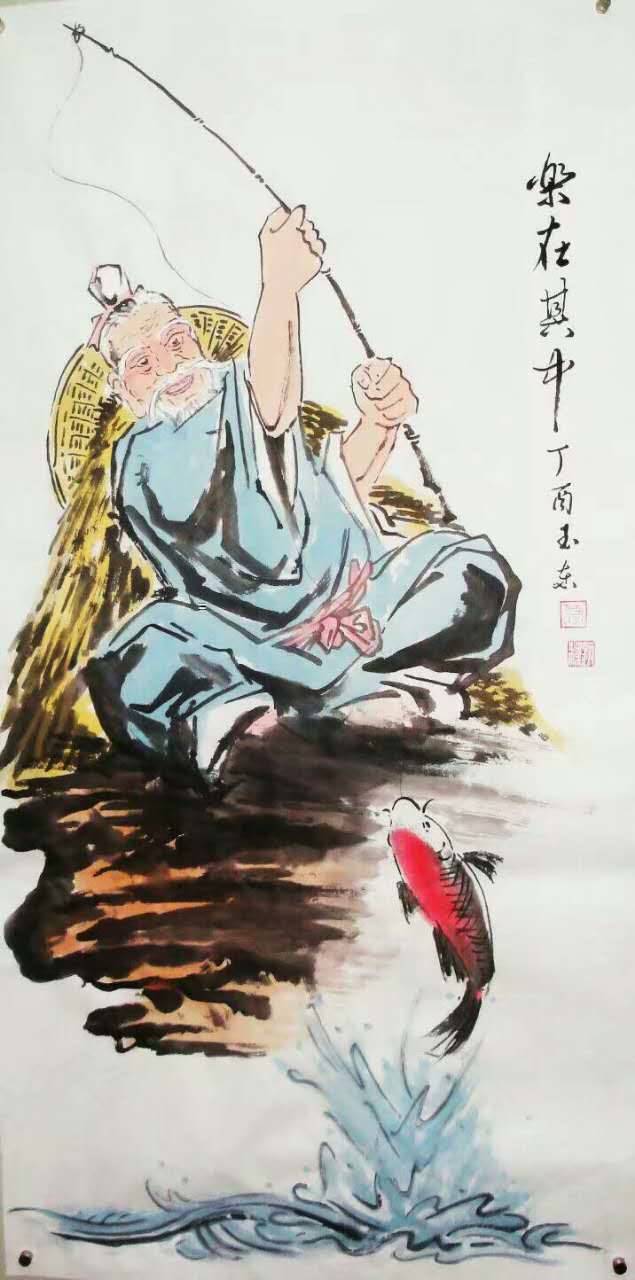 樂在其中丁酉玉东